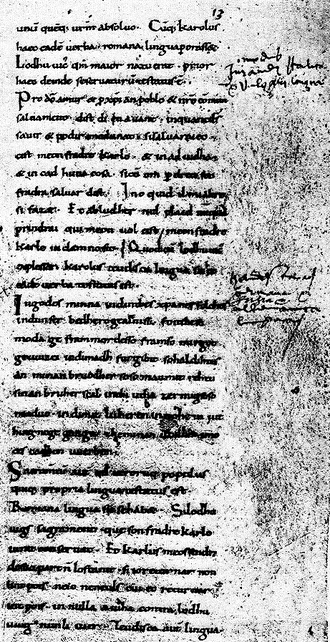 13
unū quēq; urm̄ absoluo. Cūq; karolus
haec eadē uerba romana lingua porasset
Lodhuuic qm̄ maior natu erat prior
haec deinde se seruaturū testatus ē.
Pro dō amur & p xp̄ian poblo & nrō cōmun
saluament. dist di en auant. inquant ds
sauir & podir me dunat. si saluarai eo
cist meon fradre karlo. & in aiudha
& in cad huna cosa. sicū om p dreit son
fradra saluar dist. Ino quid il mi altre
si fazet. Et ab ludher nul plaid nūquā
prindrai qui meon uol cist meon fradre
karle in damno sit. Quod cū lodhuuic
explesset. karolus teudisca lingua sic hec
eadē uerba testatus est.
In godes minna indinthes xp̄anes folches
indunser bedhero gealtnissi. fonthese
mo dage frammordesso framso mir got
geuuizci indi madh furgibit sohaldihtes
an minan bruodher soso manmit rehtu
sinan bruher scal inthi utha zermigso
so maduo. indimit luheren in nohein iut
hing nege ganga. zhe minan uuillon imo
ce scadhen uuerhen.
Sacramentū autē qd utrorūq; populus
quiq; propria lingua testatus est.
Romana lingua sic se habet. Si lodhu
uigs sagrament. que son fradre karlo
iurat conseruat. Et karlus meos sendra
desuo part n̄ lostanit. si ioreturnar non
lint pois. neio neneuls cui eo returnar
int pois. in nulla aiudha contra lodhu
uuig nunli iuer. Teudisca autē lingua.